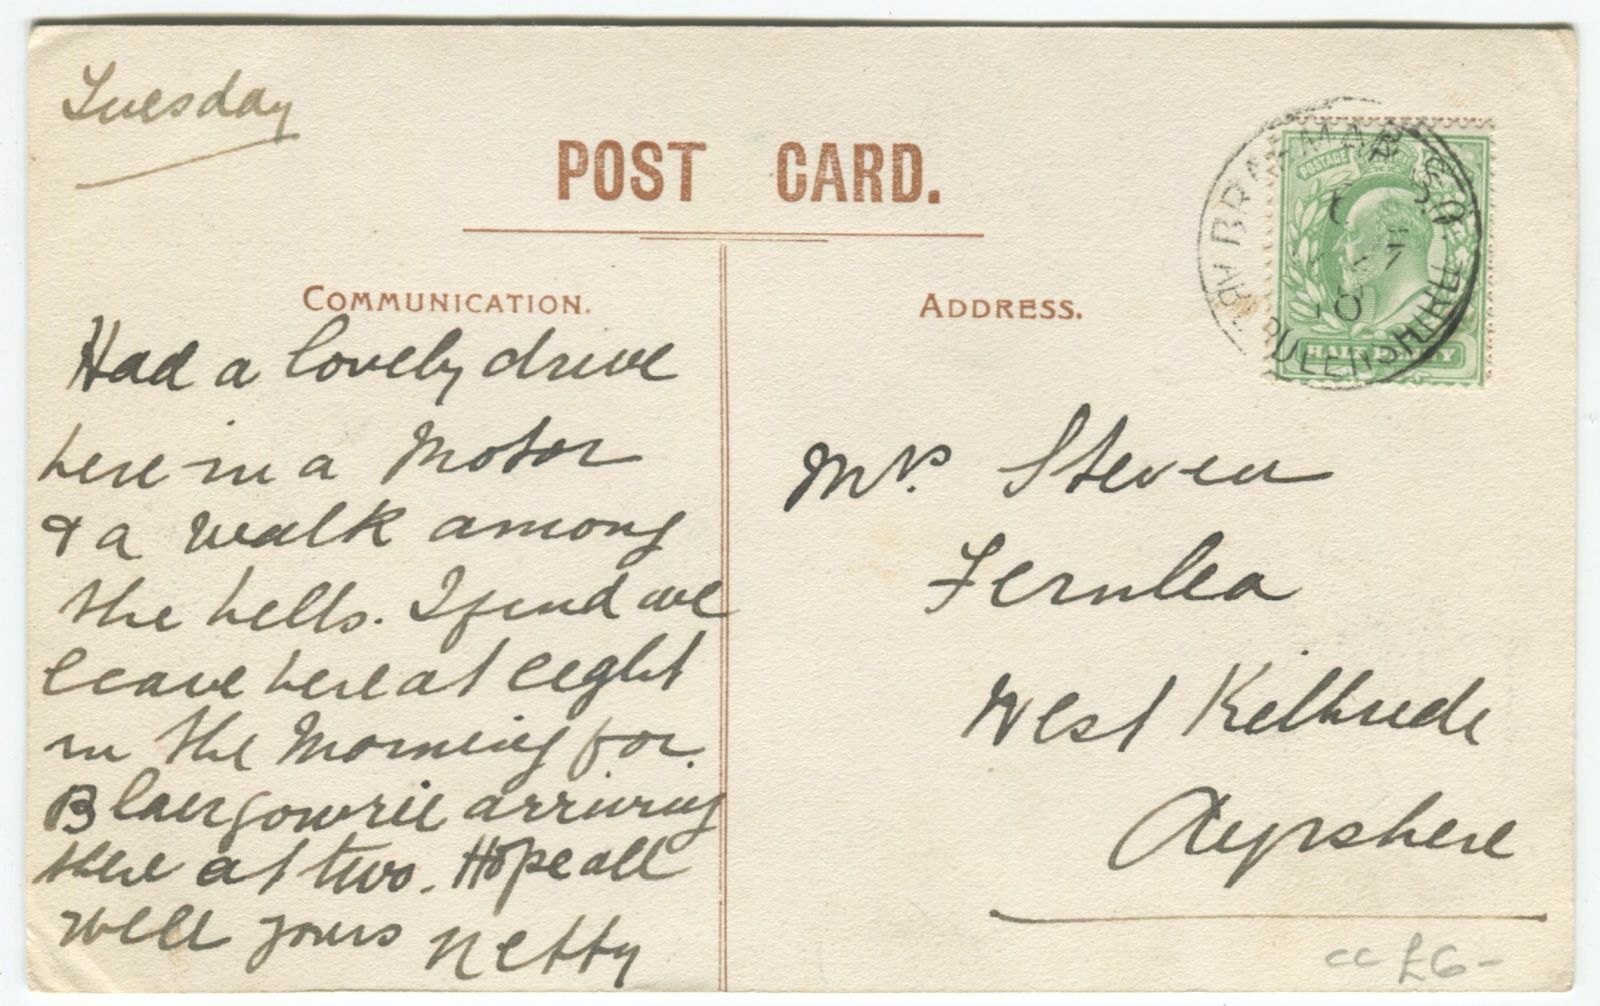 Tuesday
POST CARD.
COMMUNICATION.
ADDRESS.
Had a lovely drive
here in a Motor
& a walk among
the hills. I find we
leave here at eight
in the Morning for
Blairgowrie arriving
there at two. Hope all
well yours Netty
Mrs. Steven
Fernlea
West Kilbride
Ayrshire
POSTAGE
HALF PENNY
BRAEMAR
cc £6-